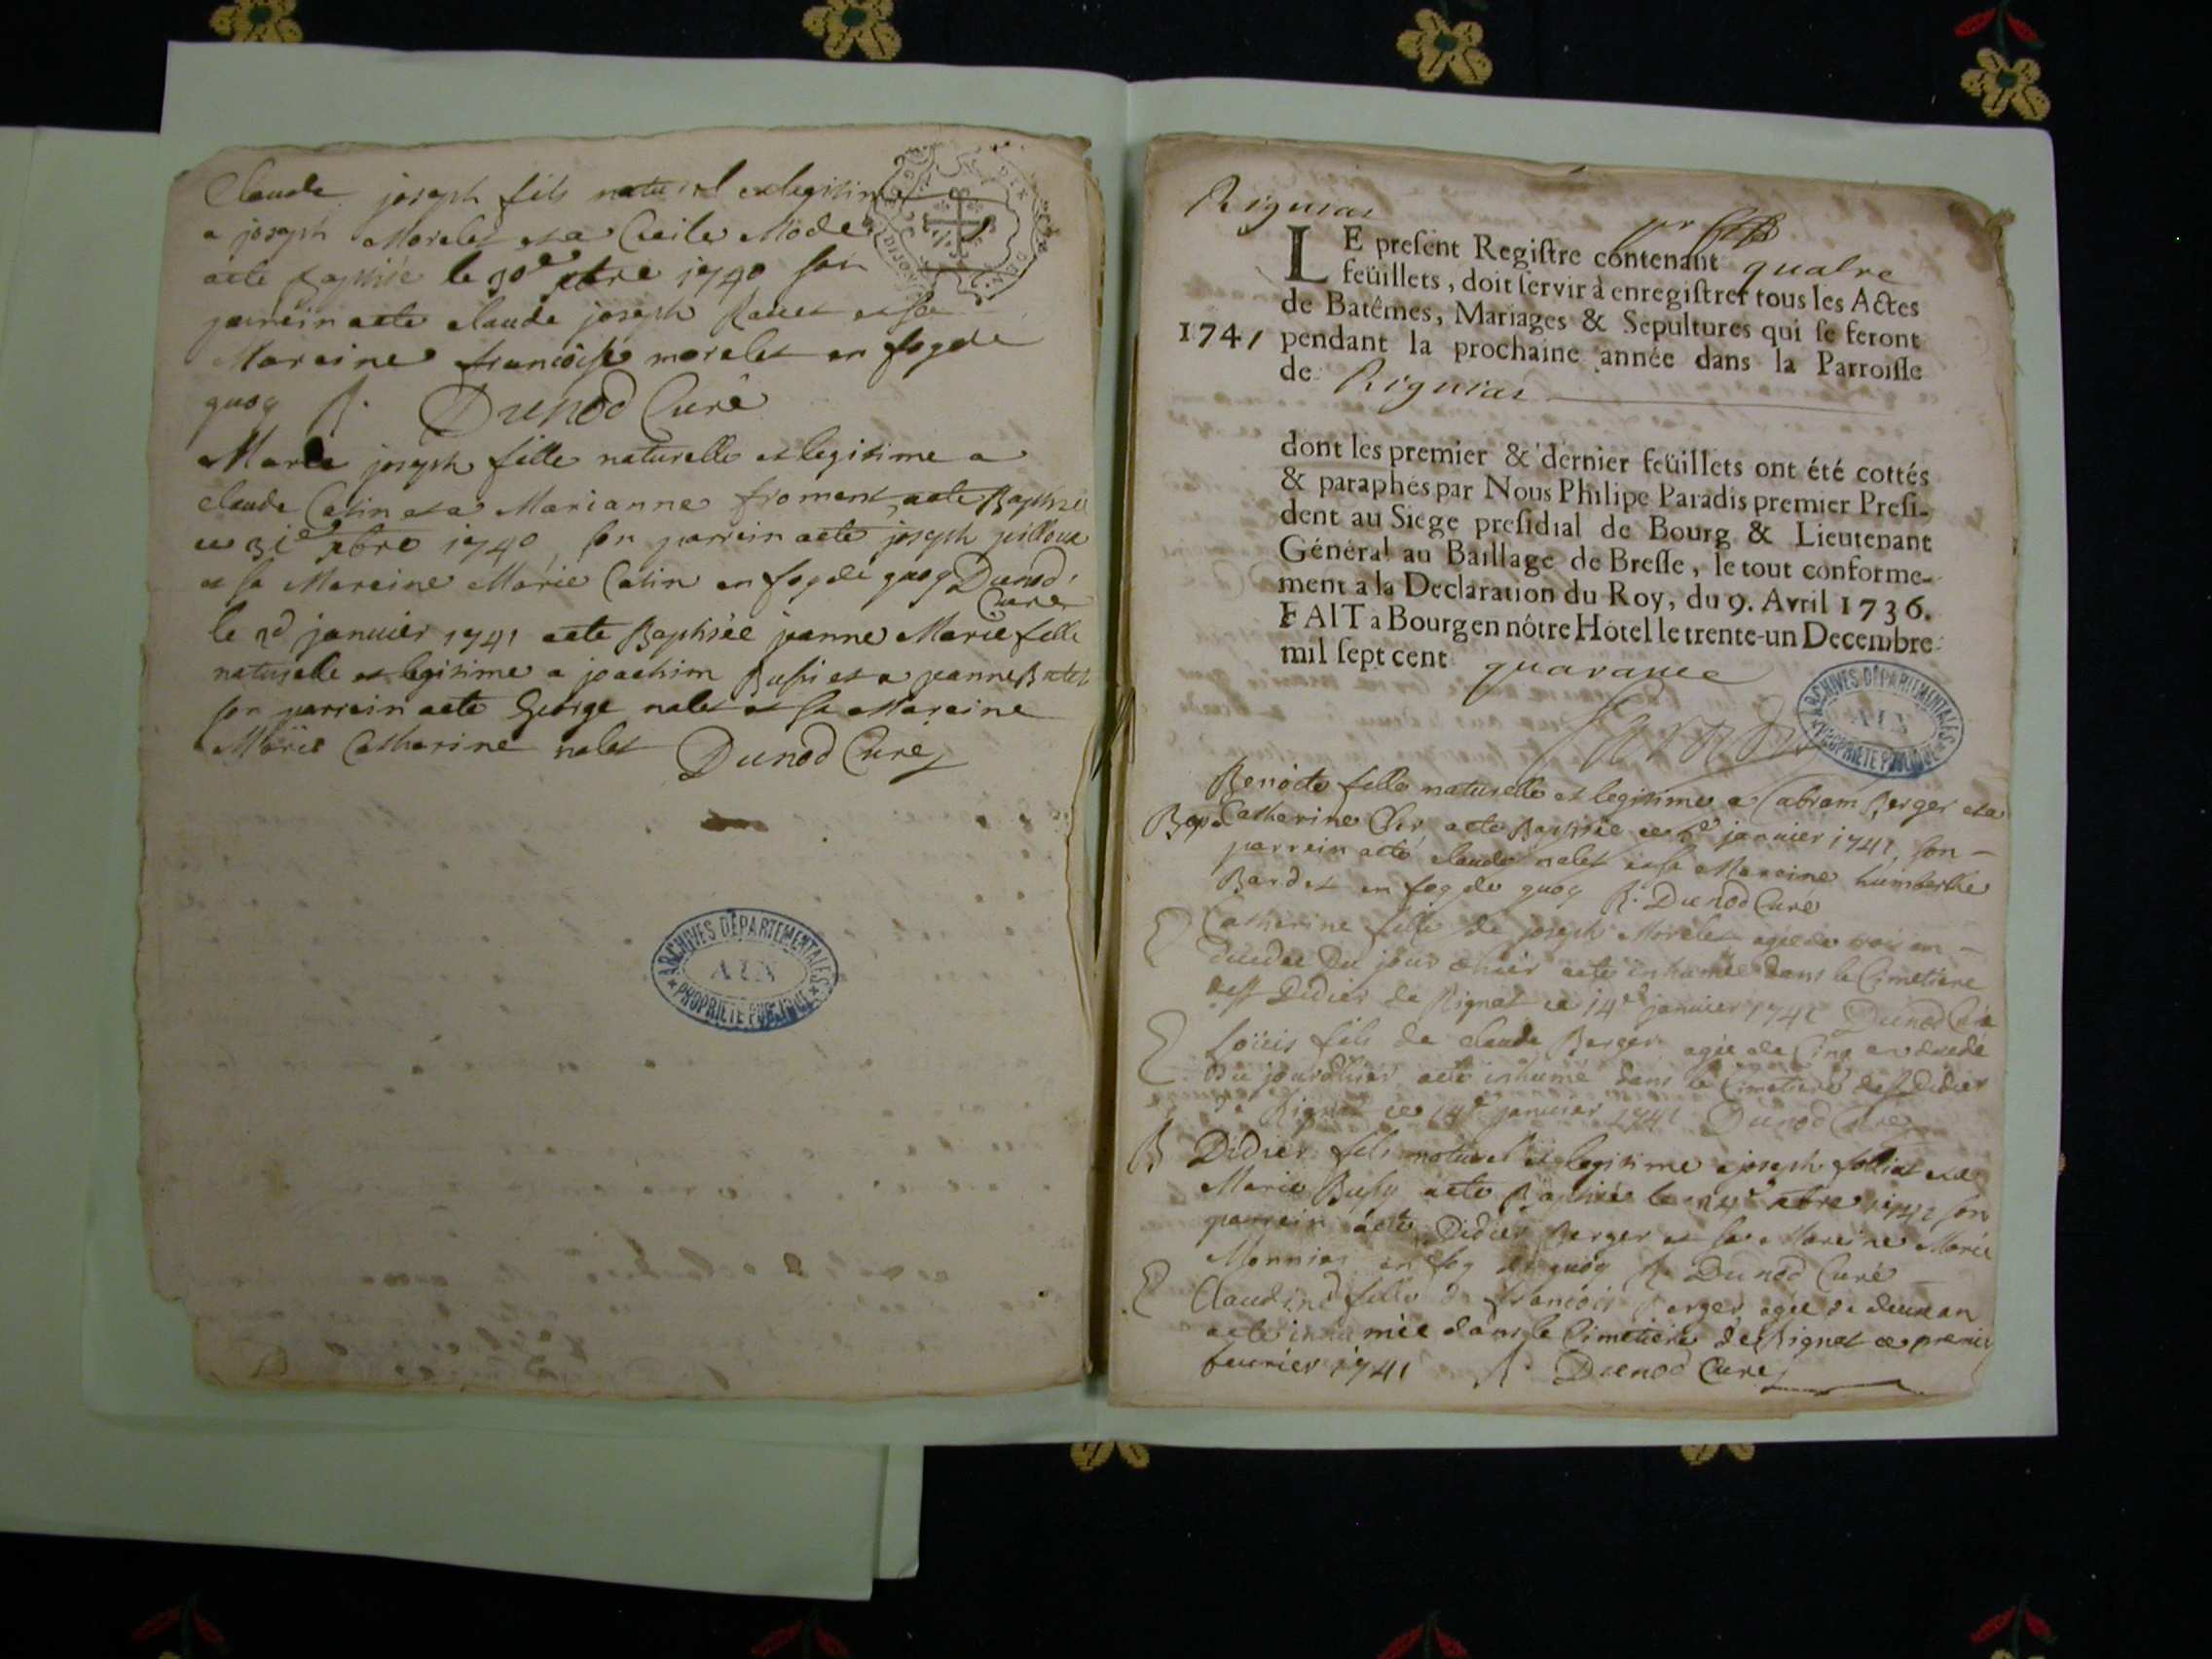 Claude joseph fils naturel et legitime
a joseph Morelet et a Cecile Mode
a ete Baptisé le 30e xbre 1740 son
parrein a ete claude joseph Ravet et sa
Mareine francoise morelet en foy de
quoy R. Dunod Curé
Marie joseph fille naturelle et legitime a
claude Catin et a Marianne froment a ete Baptisée
ce 31e xbre 1740, son parrein a ete joseph pilloux
et sa Mareine Marie Catin en foy de quoy Dunod
Curé
le 2d janvier 1741 a ete Baptisée jeanne Marie fille
naturelle et legitime a joachim Bussi et a jeanne
son parrein a ete George nalet et sa Mareine
Marie Catherine nalet Dunod Curé
ARCHIVES DEPARTEMENTALES
AIN
* PROPRIETE PUBLIQUE *
Rignias
LE present Registre contenant quatre
feüillets, doit servir à enregistrer tous les Actes
de Batêmes, Mariages & Sepultures qui se feront
1741 pendant la prochaine année dans la Parroisse
de Rignias
dont les premier & dernier feüillets ont été cottés
& paraphés par Nous Philipe Paradis premier Presi-
dent au Siege presidial de Bourg & Lieutenant
Général au Baillage de Bresse, le tout conforme-
ment a la Declaration du Roy, du 9. Avril 1736.
FAIT a Bourg en nôtre Hôtel le trente-un Decembre
mil sept cent quarante
Paradis
ARCHIVES DEPARTEMENTALES
AIN
* PROPRIETE PUBLIQUE *
Benoite fille naturelle et legitime a abram Berger et a
Bap. Catherine a ete Baptisée ce janvier 1741, son
parrein a eté claude nalet et sa Mareine humberthe
Bardet en foy de quoy R. Dunod Curé
Catherine fille de joseph Morelet agée de trois an
decedée Du jour d'hier a eté inhumée dans le Cimetiere
de st Didier de Rignat ce 14e janvier 1741 Dunod Curé
Loüis fils de claude Berger agée de Cinq an decedé
du jour d'hier a eté inhumé dans le Cimetiere de st Didier
de Rignat ce 14e janvier 1741 Dunod Curé
B Didier fils naturel et legitime a joseph folliat et a
Marie Bussy a ete Baptisée le 24e xbre 1741 son
parrein a ete Didier Berger et sa Mareine Marie
Monnier en foy de quoy R. Dunod Curé
Claudine fille de francois Berger agée de deux an
a ete inhumée dans le Cimetiere de Rignat ce premier
fevrier 1741 R. Dunod Curé